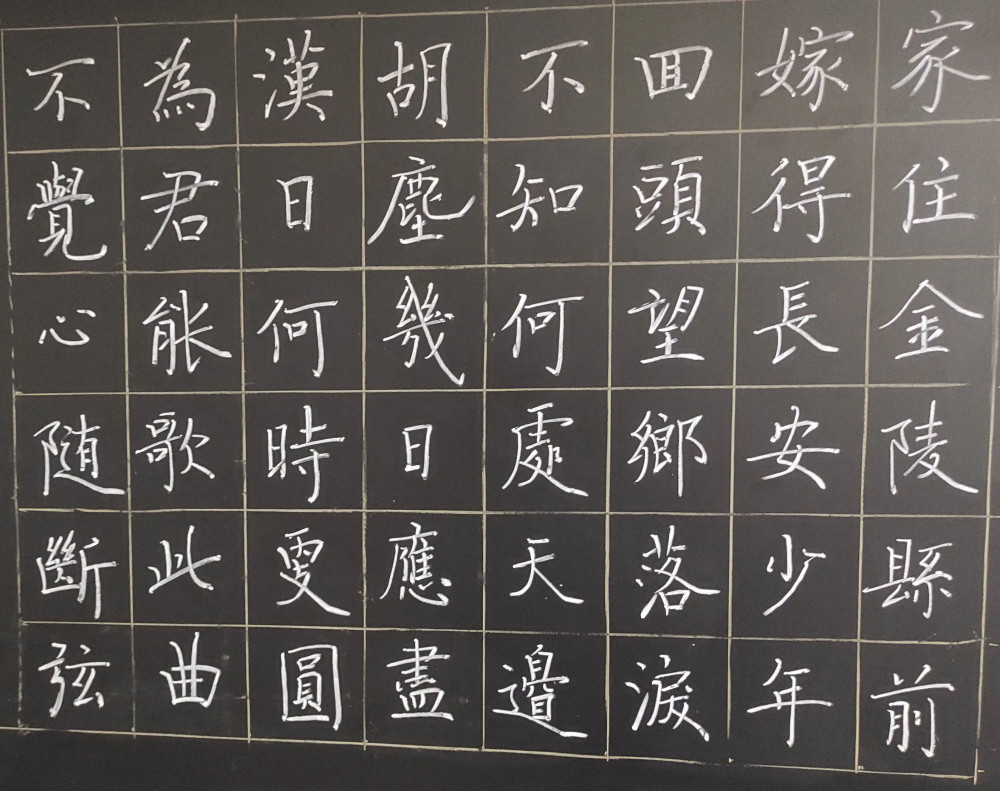 家住金陵縣前
嫁得長安少年
回頭望鄉落淚
不知何處天邊
胡塵幾日應盡
漢日何時更圓
為君能歌此曲
不覺心随斷弦